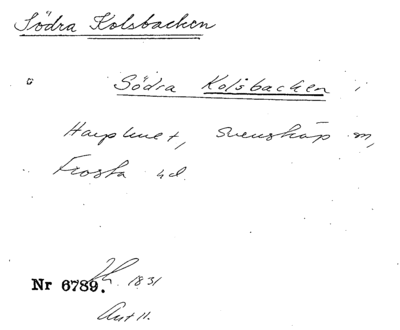 Södra Kolsbacken
Södra Kolsbacken i
svenskap sn,
Frosta hd.
Nr 6789. 1831
Avt 11.